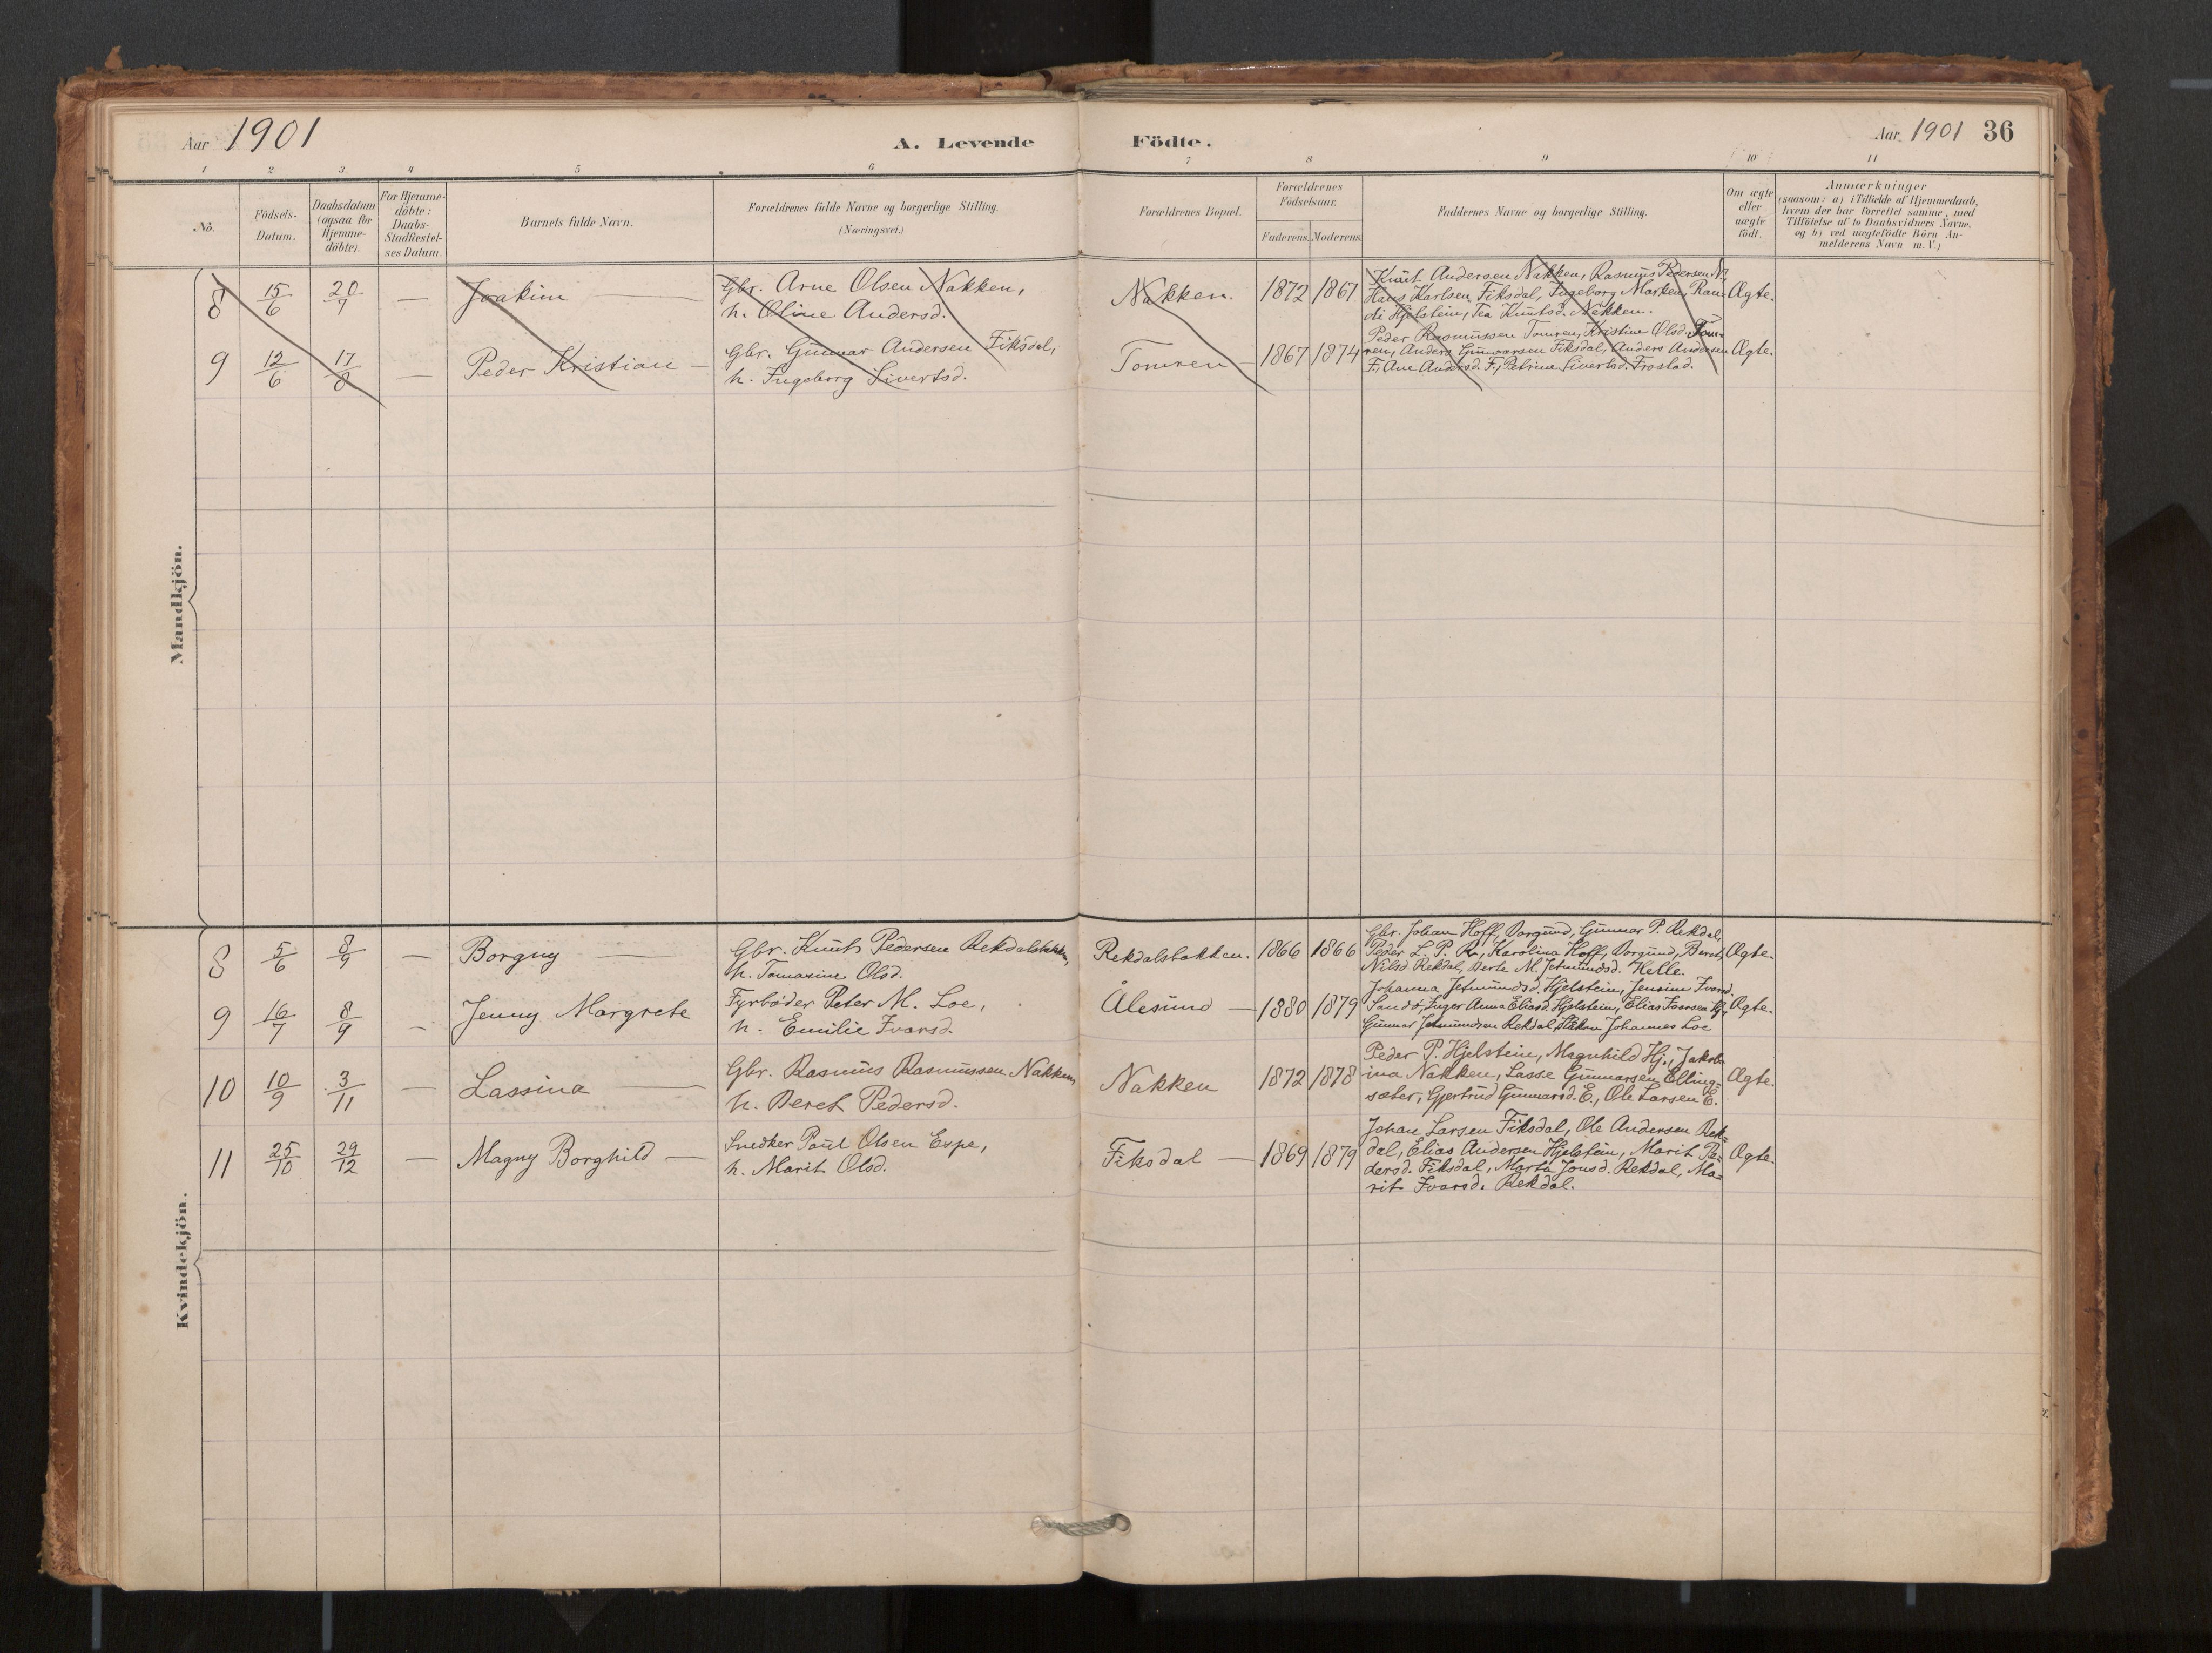 Aar 1901
A. Levende Födte.
Aar 1901 36
1 2 3 4 5 6 7 8 9 10 11
No.
Födsels-
Datum.
Daabsdatum
(ogsaa for
Hjemme-
döbte).
For Hjemme-
döbte:
Daabs-
Stadfæstel-
ses Datum.
Barnets fulde Navn.
Forældrenes fulde Navne og borgerlige Stilling.
(Næringsvei.)
Forældrenes Bopæl.
Forældrenes
Födselsaar.
Faderens. Moderens.
Faddernes Navne og borgerlige Stilling.
Om ægte
eller
uægte
født.
Anmærkninger
(saasom: a) i Tilfælde af Hjemmedaab,
hvem der har forrettet samme, med
Tilföielse af to Daabsvidners Navne,
og b) ved uægtefödte Börn An-
melderens Navn m. V.)
Mandkjön.
8 15/6 20/7 — Joakim —
Gbr. Arne Olsen Nakken,
h. Oline Andersd.
Nakken. 1872 1867
Knut Andersen Nakken, Rasmus Pedersen N.
Hans Karlsen Fiksdal, Ingeborg Marken, Ran-
di Hjelstein, Tea Knutsd. Nakken.
Ægte.
9 12/6 17/8 — Peder Kristian —
Gbr. Gunnar Andersen Fiksdal,
h. Ingeborg Sivertsd.
Tomren 1867 1874
Peder Rasmussen Tomren, Kristine Olsd. Tom-
ren, Anders Gunnarsen Fiksdal, Anders Andersen
F., Ane Andersd. F., Petrine Sivertsd. Frostad.
Ægte.
Kvindekjön.
8 5/6 8/9 — Borgny —
Gbr. Knut Pedersen Rekdalsbakken,
h. Tomasine Olsd.
Rekdalsbakken. 1866 1866
Gbr. Johan Hoff, Borgund, Gunnar P. Rekdal,
Peder L. P. R., Karolina Hoff, Borgund, Beret
Nilsd Rekdal, Berte M. Jetmundsd. Helle.
Ægte.
9 16/7 8/9 — Jenny Margrete
Fyrbøder Peter M. Loe,
h. Emilie Ivarsd.
Ålesund — 1880 1879
Johanna Jetmundsd. Hjelstein, Jensine Ivarsd.
Sandø, Inger Anna Eliasd. Hjelstein, Elias Ivarsen Hj.,
Gunnar Jetmundsen Rekdal, Håkon Johannes Loe
Ægte.
10 10/9 3/11 — Lassina —
Gbr. Rasmus Rasmussen Nakken,
h. Beret Pedersd.
Nakken 1872 1878
Peder P. Hjelstein, Magnhild Hj., Jakob-
ina Nakken, Lasse Gunnarsen Elling-
sæter, Gjertrud Gunnarsd. E., Ole Larsen E.
Ægte.
11 25/10 29/12 — Magny Borghild —
Snedker Paul Olsen Espe,
h. Marit Olsd.
Fiksdal — 1869 1879
Johan Larsen Fiksdal, Ole Andersen Rek-
dal, Elias Andersen Hjelstein, Marit Pe-
dersd. Fiksdal, Marta Jonsd. Rekdal, Ma-
rit Ivarsd. Rekdal.
Ægte.